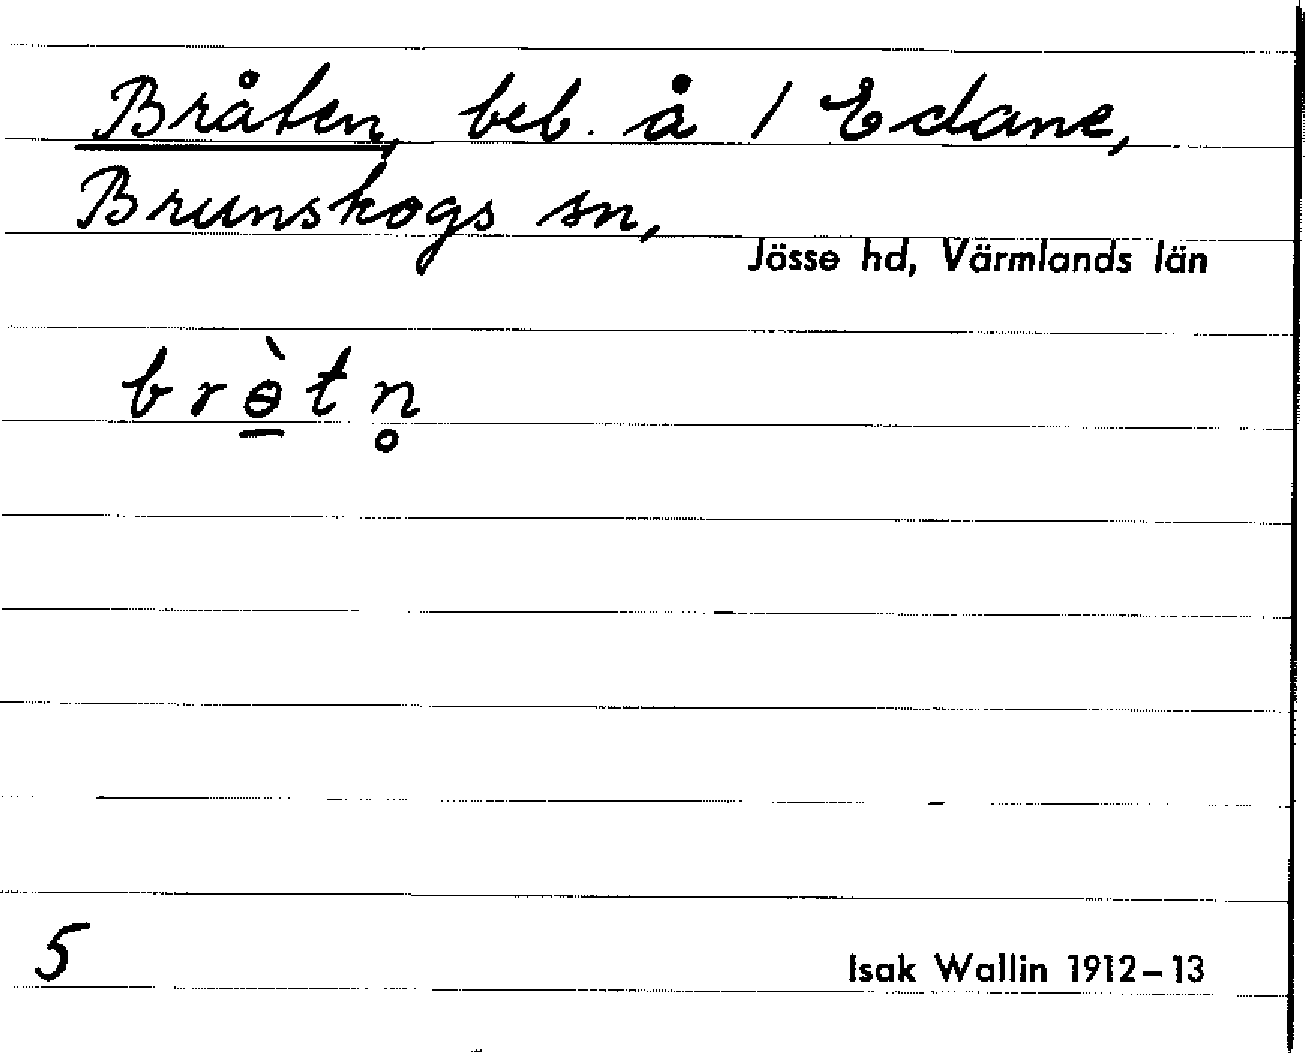 Bråten, beb. å / Edane,
Brunskogs sn,
Jösse hd, Värmlands län
brɵ̠̀tn̥
5
Isak Wallin 1912–13